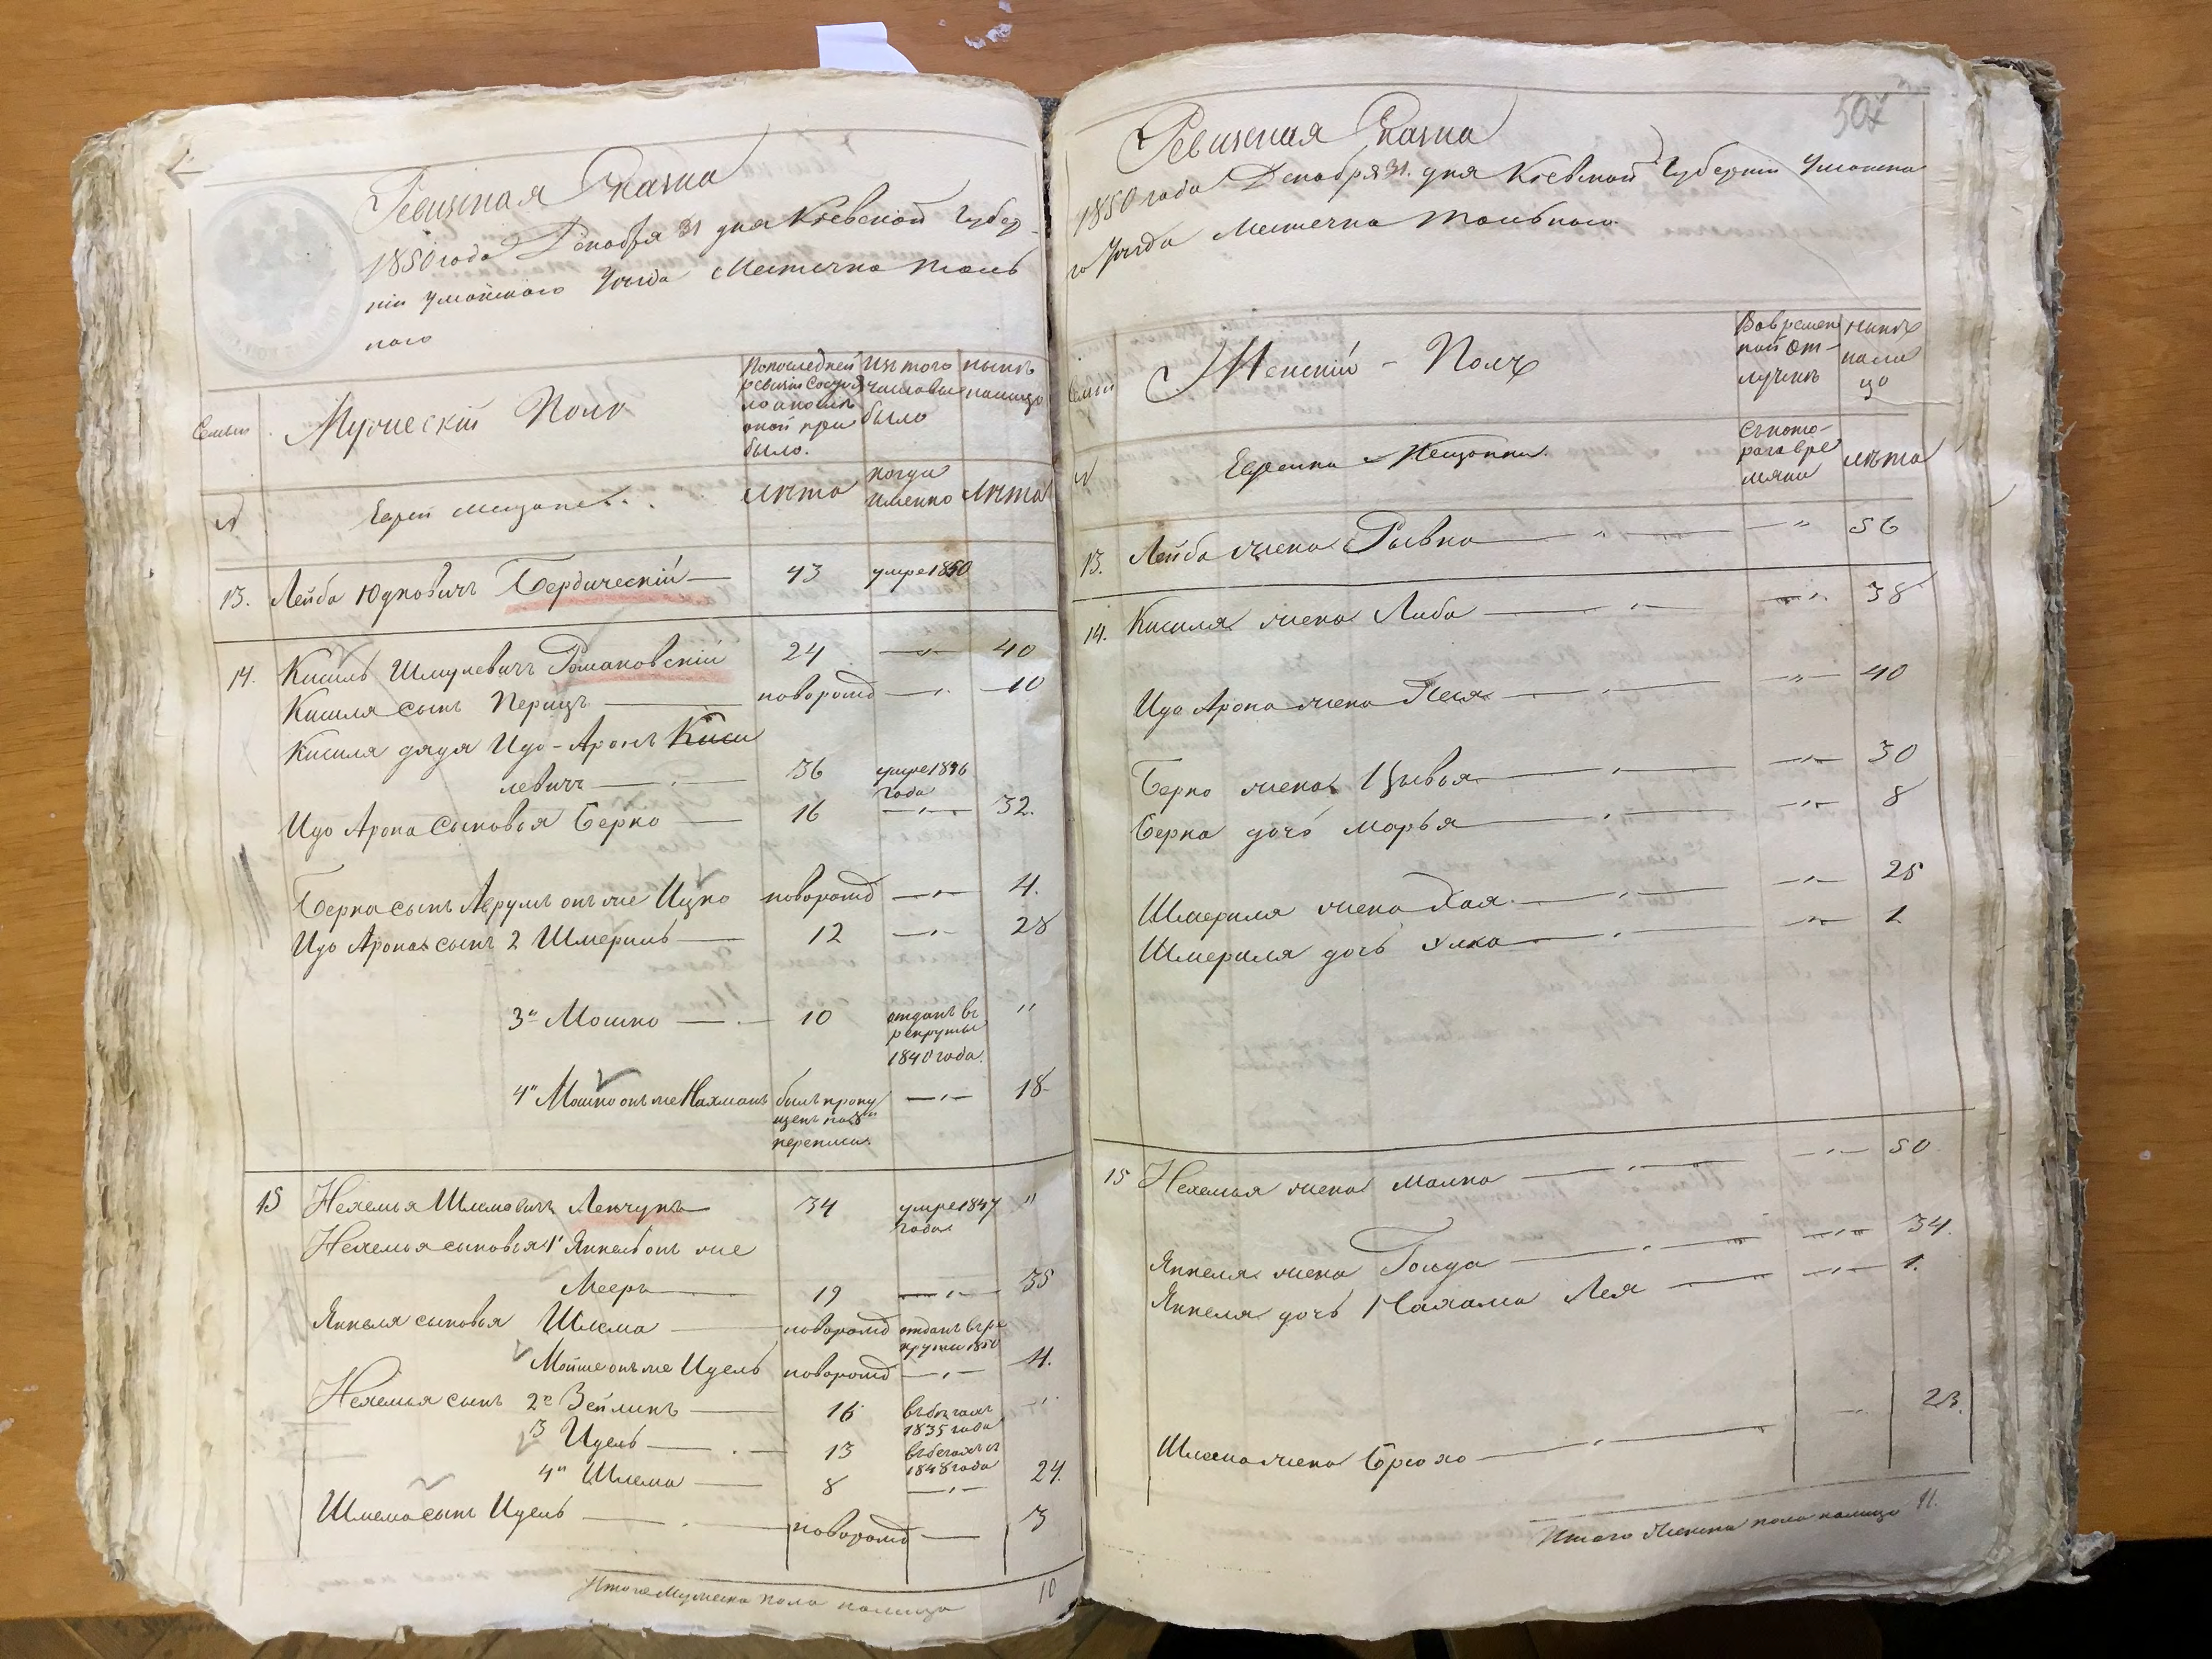 Ревизская Сказка
1850 года Декабря 31 дня Кіевской Губер-
ніи Уманского Уѣзда Местечка Таль
ного
Семьи
Мужескій Полъ
По последней ревизіи состояло и после оной прибыло.
Изъ того числа выбыло
Нынѣ на лицо
№
Евреи мещане
Лѣта
Когда именно
Лѣта
13. Лейба Юдковичъ Бердическій 43 умре 1850
14. Кисиль Шмулевичъ Романовскій 24 — " — 40
Кисиля сынъ Перецъ новорожд — " — 10
Кисиля дядя Идо-Аронъ Киси
левичъ 36 умре 1846 года
Идо Арона сыновья Берко 16 — " — 32.
Берка сынъ Аврумъ онъ же Ицко новорожд — " — 4.
Идо Арона сынъ 2 Шмериль 12 — " — 28
3й Мошко 10 отданъ въ рекруты 1840 года. "
4й Мошко онъ же Нахманъ былъ пропущенъ по 8й переписи. — " — 18
15 Нехемья Шлемовичъ Ленчукъ 34 умре 1847 года "
Нехемья сыновья 1й Янкель онъ же
Мееръ 19 — " — 35
Янкеля сыновья Шлема новорожд отданъ въ рекруты 1850
Мойше онъ же Идель новорожд — " — 4.
Нехемья сынъ 2й Зейликъ 16 въ бегахъ 1835 года "
3 Идель 13 въ бегахъ съ 1848 года
4й Шлема 8 — " — 24.
Шлема сынъ Идель новорожд — 3
Итого Мужеска пола налицо 10
507
Ревизская Сказка
1850 года Декабря 31. дня Кіевской Губерніи Уманска
го Уѣзда Местечка Тального.
Семьи
Женскій - Полъ
Во временной отлучкѣ
Нынѣ на лицо
№
Еврейки Мещанки.
Съ которого времяни
Лѣта
13. Лейба жена Рывка — " — 56
14. Кисиля жена Либа — " — 38
Идо Арона жена Песя — " — 40
Берко жена Цывья — " — 30
Берка дочь Марья — " — 8
Шмериля жена Хая — " — 25
Шмериля дочь Элка — " — 1
15 Нехемья жена Малка — " — 50
Янкеля жена Голда — " — 34.
Янкеля дочь Нахама Лея — " — 1.
Шлема жена Брюхо — " — 23.
Итого Женска пола налицо 11.